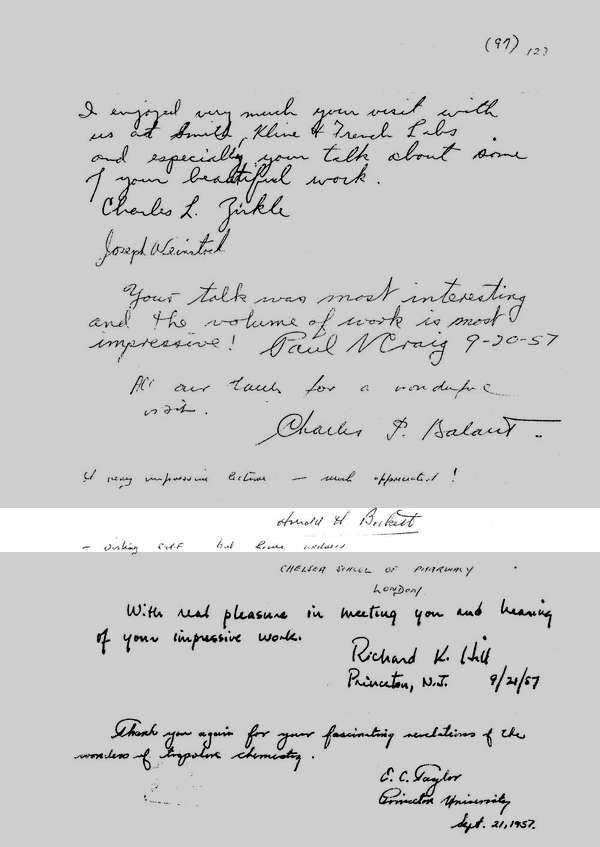 (97) 123
I enjoyed very much your visit with
us at Smith, Kline & French Labs
and especially your talk about some
of your beautiful work.
Charles L. Zirkle
Joseph Weinstock
Your talk was most interesting
and the volume of work is most
impressive! Paul N Craig 9-20-57
All our thanks for a wonderful
visit.
Charles P. Balant
A very impressive lecture - much appreciated!
Arnold H Beckett
- visiting but home
CHELSEA SCHOOL OF PHARMACY
LONDON
With real pleasure in meeting you and hearing
of your impressive work.
Richard K. Hill
Princeton, N.J. 9/21/57
Thank you again for your fascinating revelations of the
wonders of tropolone chemistry.
E. C. Taylor
Princeton University
Sept. 21, 1957.